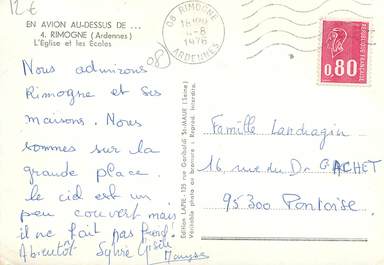 12 €
EN AVION AU-DESSUS DE ...
4. RIMOGNE (Ardennes)
L'Eglise et les Ecoles
(08)
08 RIMOGNE
1976
ARDENNES
0,80
Nous admirons
Rimogne et ses
maisons. Nous
sommes sur la
grande place.
le ciel est un
peu couvert mais
il ne fait pas froid!
Abientôt Sylvie Gisèle
Edition LAPIE - 125 rue Garibaldi St-MAUR (Seine)
Véritable photo au bromure - Reprod. Interdite.
Famille Landragin
16 rue du Dr GACHET
95300 Pontoise